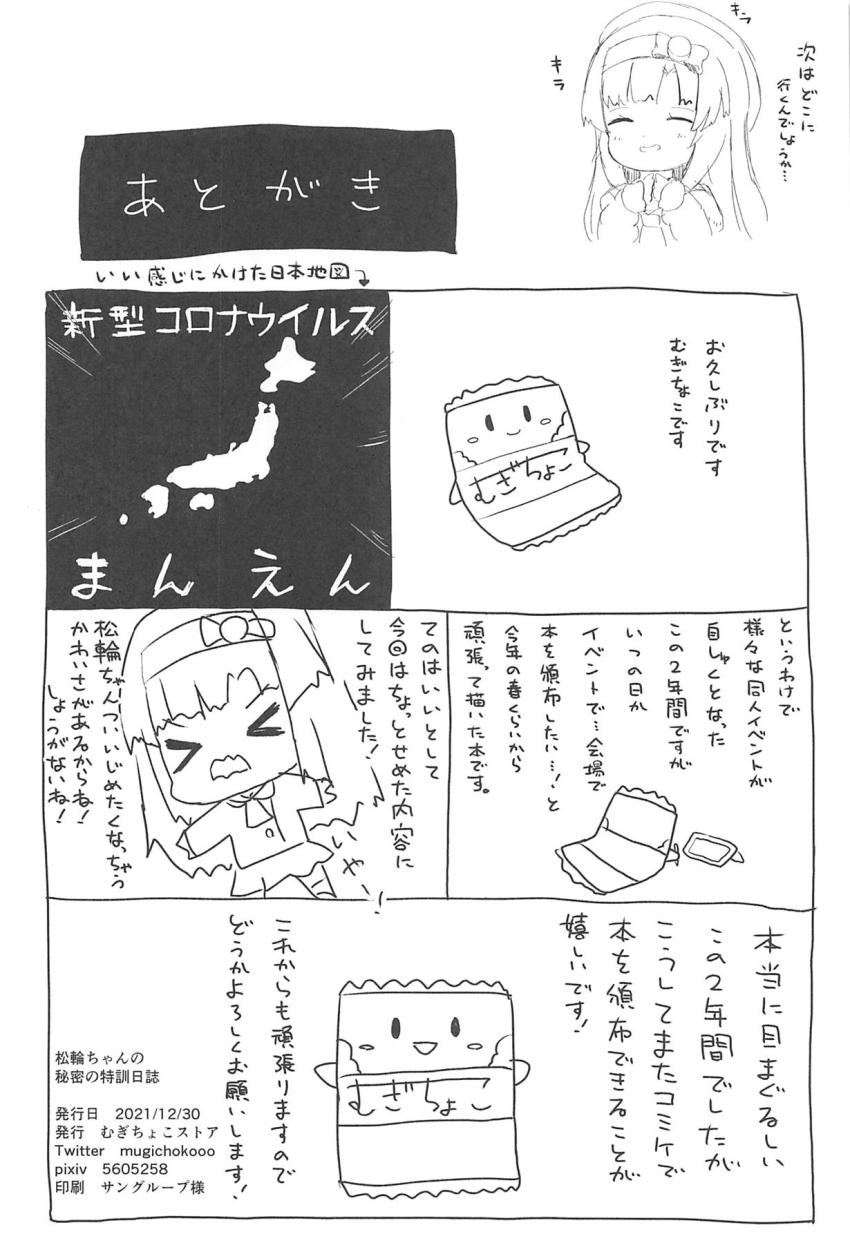 キラ
キラ
次はどこに
行くんでしょうか…
あとがき
いい感じにかけた日本地図
お久しぶりです
むぎちょこです
むぎちょこ
新型コロナウイルス
まんえん
というわけで
様々な同人イベントが
自しゅくとなった
この2年間ですが
いつの日か
イベントで…会場で
本を頒布したい…!と
今年の春くらいから
頑張って描いた本です。
てのはいいとして
今回はちょっとせめた内容に
してみました!
いやー!
松輪ちゃんついいじめたくなっちゃう
かわいさがあるからね!
しょうがないね!
本当に目まぐるしい
この2年間でしたが
こうしてまたコミケで
本を頒布できることが
嬉しいです!
むぎちょこ
これからも頑張りますので
どうかよろしくお願いします!
松輪ちゃんの
秘密の特訓日誌
発行日 2021/12/30
発行 むぎちょこストア
Twitter mugichokooo
pixiv 5605258
印刷 サングループ様